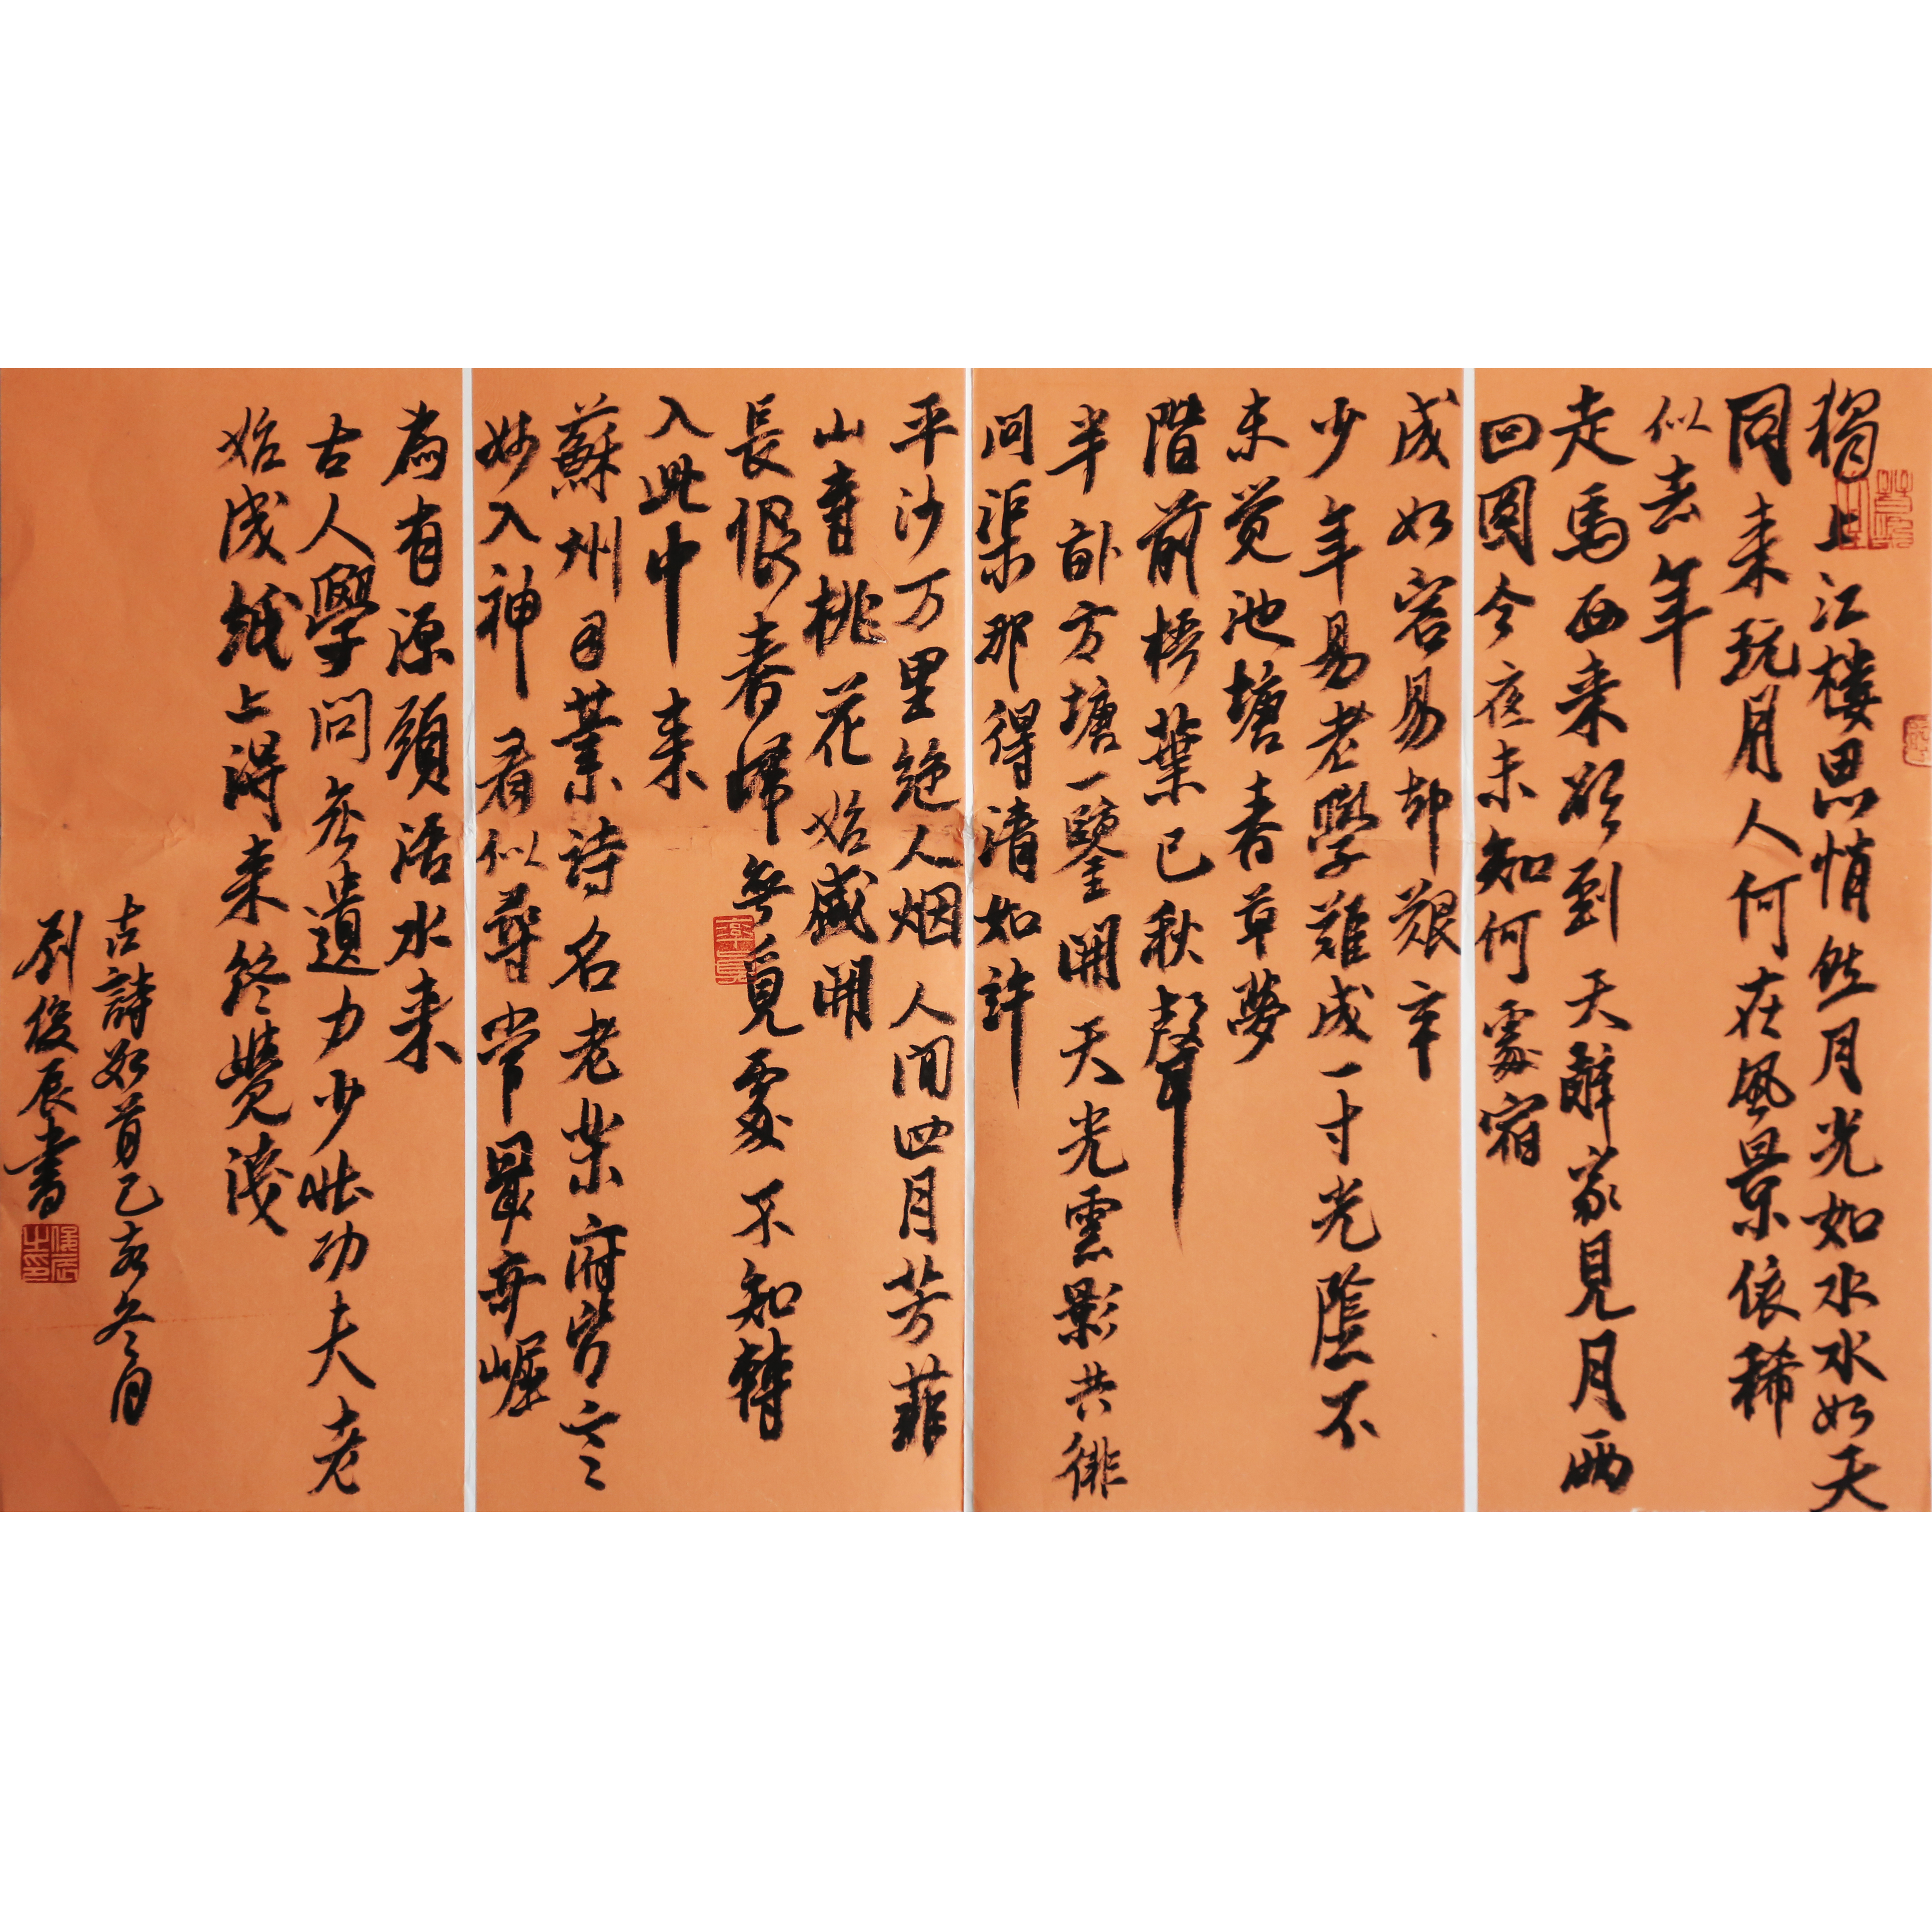 獨上江楼思悄然月光如水水如天
同来玩月人何在風景依稀
似去年
走馬西来欲到天辭家見月兩
回圆今夜未知何處宿
成如容易却艱辛
少年易老學難成一寸光陰不
未覚池塘春草夢
階前梧葉已秋聲
半畝方塘一鑒開天光雲影共徘
問渠那得清如許
平沙万里絶人烟人间四月芳菲
山寺桃花始盛開
長恨春歸無覓處不知轉
入此中来
蘇州司業詩名老楽府皆言
妙入神看似尋常最奇崛
為有源頭活水来
古人學问無遺力少壮功夫老
始成紙上得来終覺淺
古詩如首己亥冬月
劉俊辰書